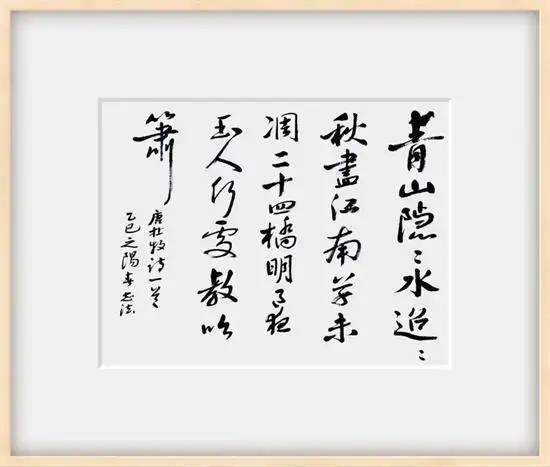 青山隐〻水迢〻
秋盡江南草未
凋二十四橋明月夜
玉人何處教吹
簫
唐杜牧诗一首
乙巳之陽李志